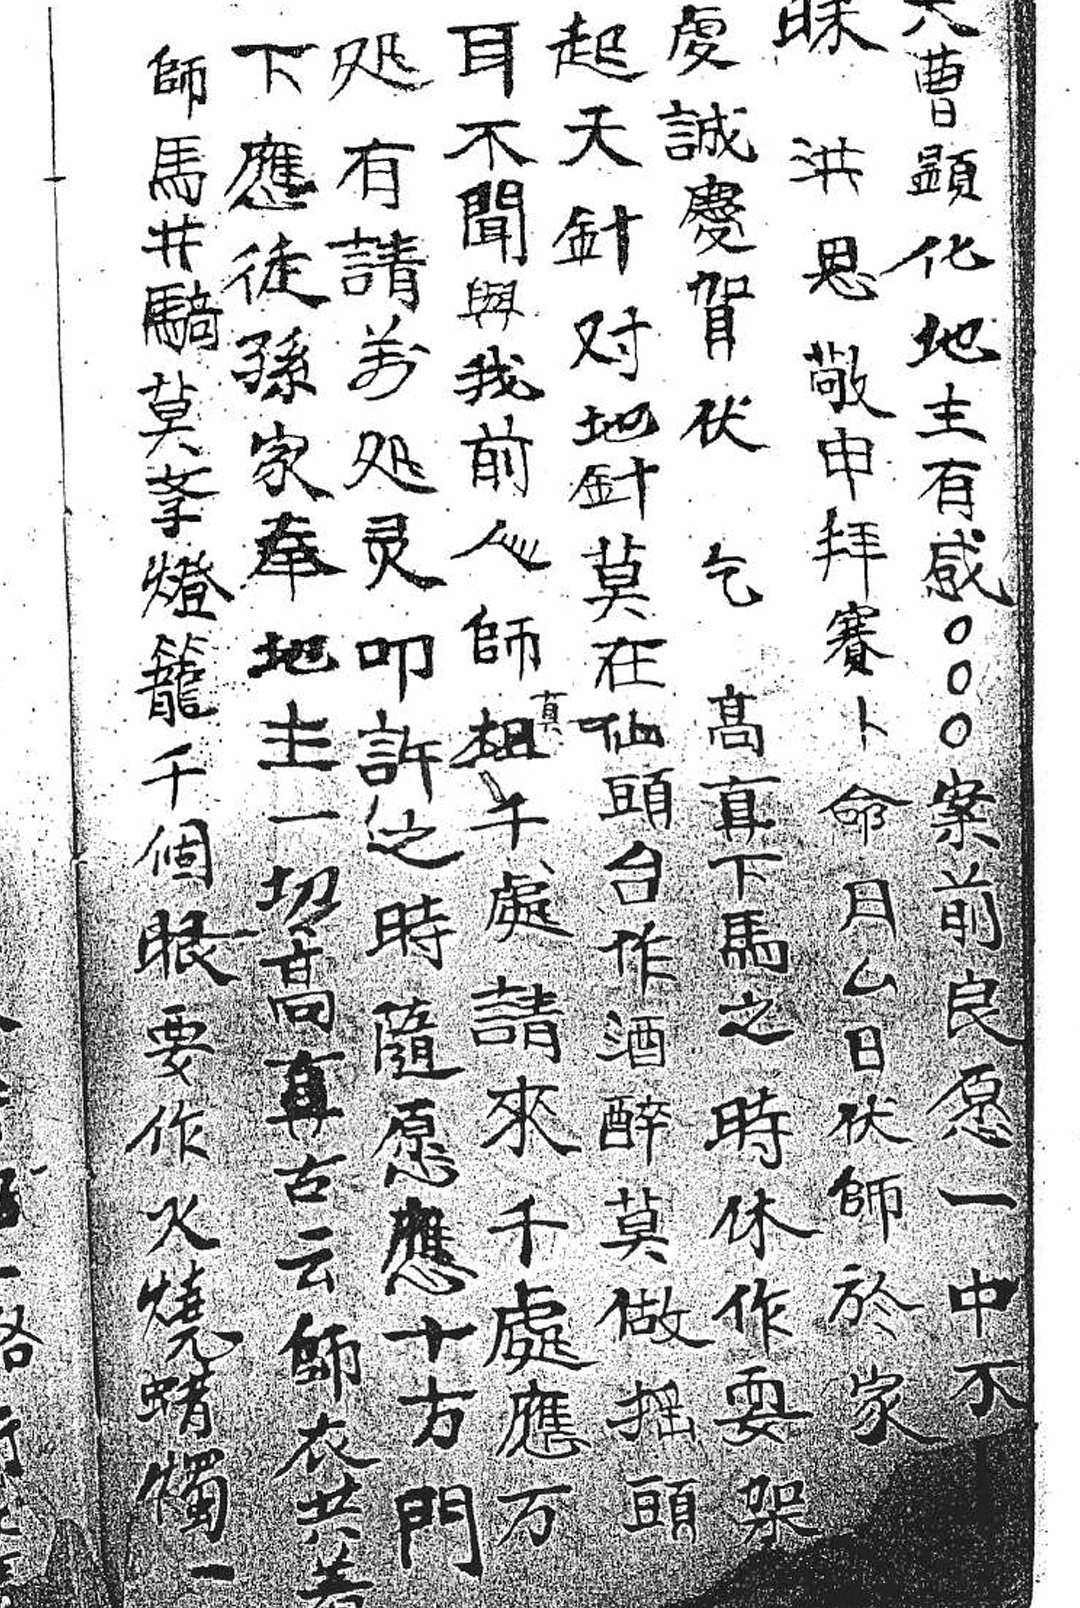 天曹顕化地主有感〇〇〇案前良愿一中不
昧洪恩敬申拜賽卜命月厶日伏師於家
虔誠慶賀伏乞高真下馬之時休作耍架
起天針对地針莫在仙頭台作酒醉莫做摇頭
耳不聞與我前人師祖真千處請來千處應万
処有請万処灵叩許之時隨愿應十方門
下應徒孫家奉地主一切高真古云師衣共着
師馬共騎莫拿燈籠千個眼要作火燒蜡燭一